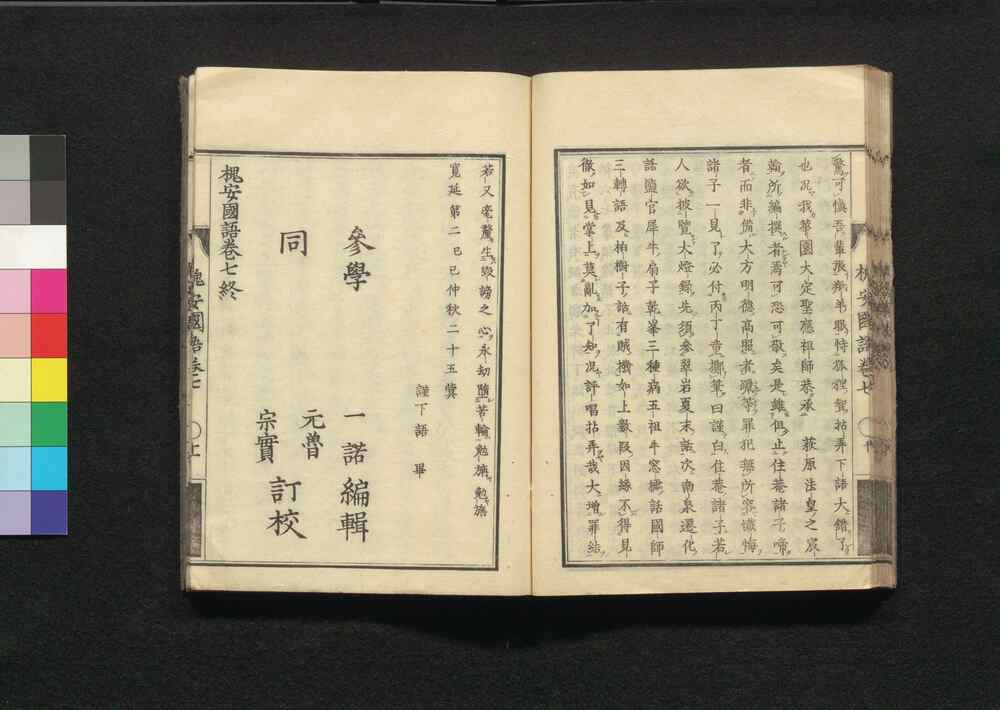 驚可愼吾輩張弟弟職恃狐狸智拈弄下語大錯了
也况我華園大定聖應祖師恭承　萩原法皇之宸
翰所編撰者焉可恐可敬矣是雖俱止住菴諸子啼
者而非備大方明德高照者礙等罪犯無所容懺悔
諸子一見了必付丙丁童擲筆曰謹白住菴諸子若
人欲披覽大燈錄先須參翠岩夏末話次南泉遷化
話鹽官犀牛扇子乾峯三種病五祖牛窓櫺話國師
三轉語及柏樹子話有賊機如上數段因緣不得見
徹如見掌上莫亂加了知况評唱拈弄哉大增罪結
若又毫釐生毀謗之心永劫墮苦輪勉旃勉旃
寬延第二己巳仲秋二十五蓂
謹下語　畢
參學　一諾編輯
同　元魯
宗實　訂校
槐安國語卷七終
槐安國語卷七
槐安國語卷七